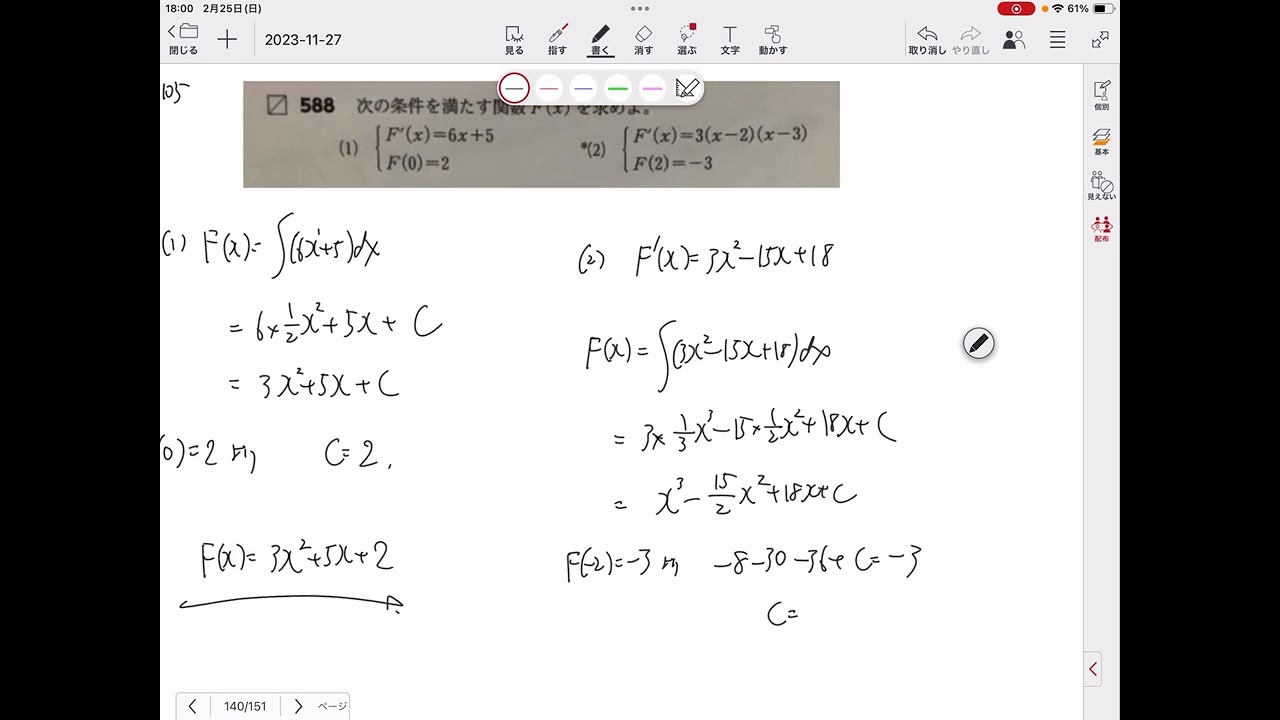 18:00 2月25日(日)
61%
閉じる
2023-11-27
見る 指す 書く 消す 選ぶ 文字 動かす
取り消し やり直し
105
588 次の条件を満たす関数 F(x) を求めよ。
(1) { F'(x)=6x+5
F(0)=2
*(2) { F'(x)=3(x-2)(x-3)
F(2)=-3
(1) F(x)=∫(6x¹+5)dx
= 6×1/2x²+5x+C
= 3x²+5x+C
0)=2より C=2.
F(x)=3x²+5x+2
(2) F'(x)=3x²-15x+18
F(x)=∫(3x²-15x+18)dx
= 3×1/3x³-15×1/2x²+18x+C
= x³-15/2x²+18x+C
F(-2)=-3より -8-30-36+C=-3
C=
個別
基本
見えない
配布
140/151 ページ